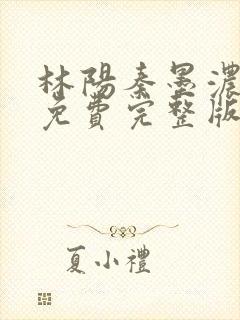 林陽秦墨濃
免費完整版
夏小禮